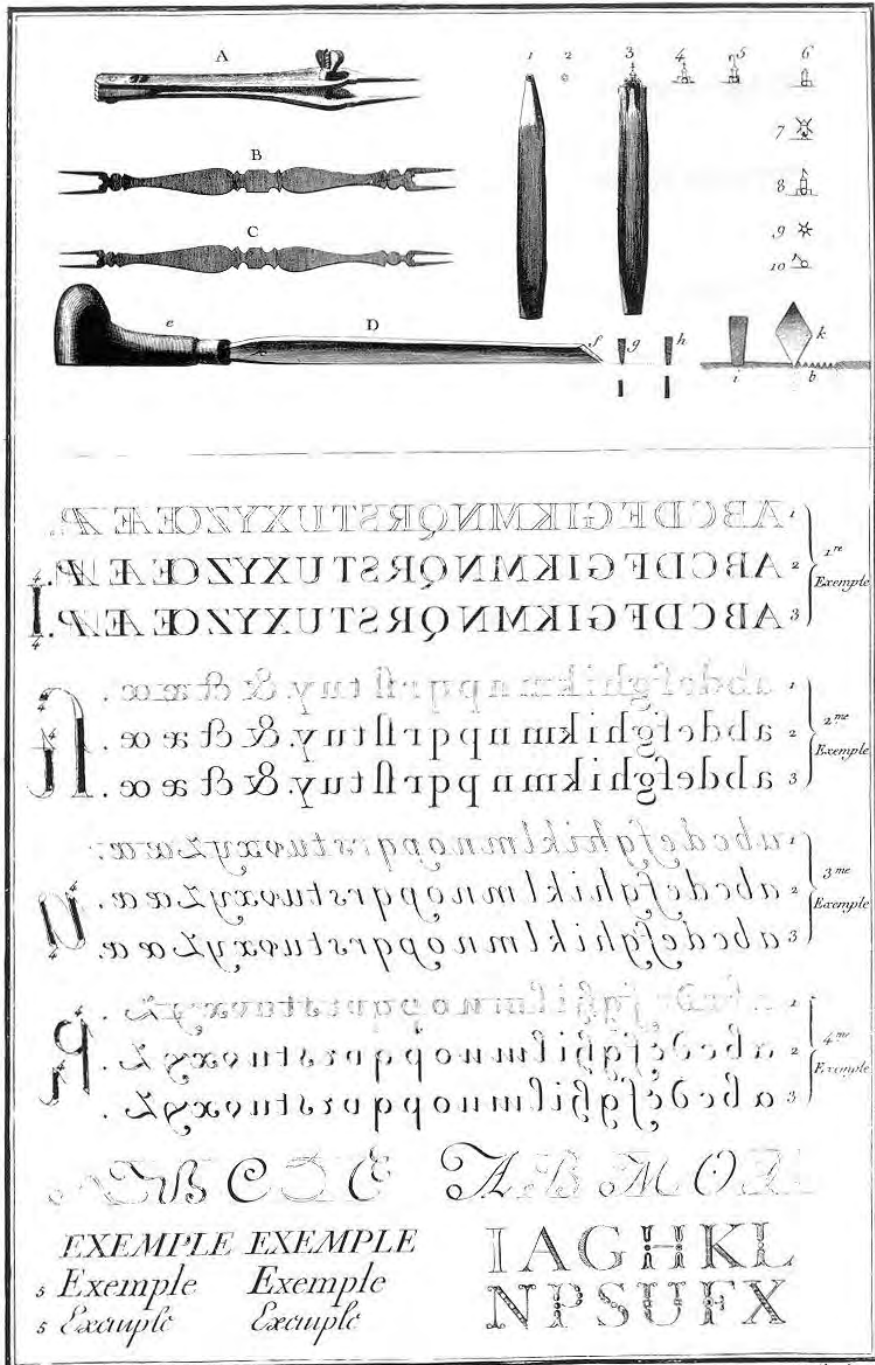 A
1 2 3 4 5 6
7
B
8
C
9
10
e D f g h i k b
1 ABCDFGIKMNQRSTUXYZŒÆ
2 ABCDFGIKMNQRSTUXYZŒÆ
3 ABCDFGIKMNQRSTUXYZŒÆ
1re Exemple
4
4
1 abdefghikmnpqrſtuy. & ct æ œ .
2 abdefghikmnpqrſtuy. & ct æ œ .
3 abdefghikmnpqrſtuy. & ct æ œ .
2me Exemple
1 abcdefghiklmnopqrstuvxyz æ œ
2 abcdefghiklmnopqrstuvxyz æ œ .
3 abcdefghiklmnopqrstuvxyz æ œ .
3me Exemple
1
2 abcdefghilmnopqrstuvxyz .
3 abcdefghilmnopqrstuvxyz .
4me Exemple
B C D E A B M O
EXEMPLE EXEMPLE
5 Exemple Exemple
5 Exemple Exemple
IAGHKL
NPSUFX